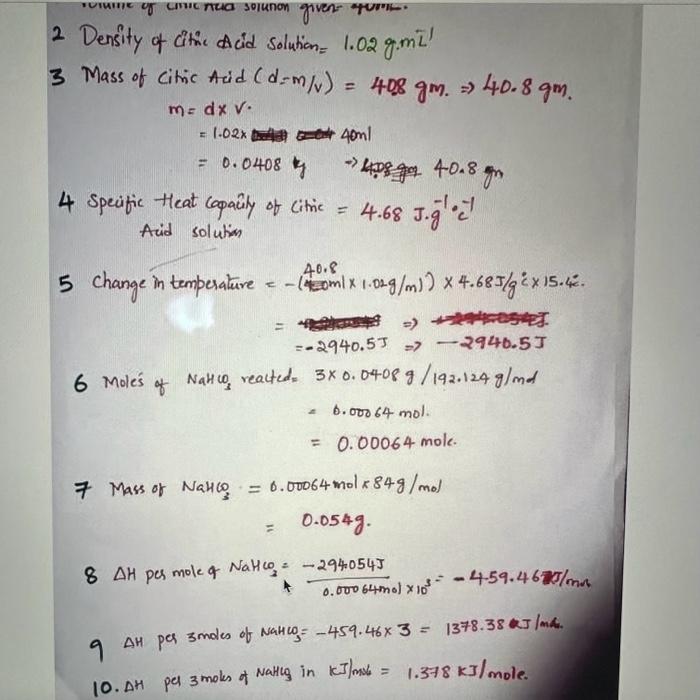 Volume of Citric Acid solution given = 40ml.
2 Density of Citric Acid Solution = 1.02 g.mL⁻¹
3 Mass of Citric Acid (d=m/v) = 408 gm. ⇒ 40.8 gm.
m = d x v.
= 1.02x 40ml
= 0.0408 kg → 40.8 gm
4 Specific Heat Capacity of Citric = 4.68 J.g⁻¹.°c⁻¹
Acid solution
40.8
5 Change in temperature = -( 0ml x 1.02g/ml)) x 4.68J/g°c x 15.4°c.
= ⇒
= -2940.5J ⇒ -2940.5J
6 Moles of NaHCO₃ reacted = 3 x 0.0408 g / 192.124 g/mol
= 0.00064 mol.
= 0.00064 mole.
7 Mass of NaHCO₃ = 0.00064 mol x 84g/mol
= 0.054g.
8 ΔH per mole of NaHCO₃ = -294054J
0.00064mol x 10³ = -459.46 J/mol
9 ΔH per 3moles of NaHCO₃ = -459.46 x 3 = 1378.38 J/mol.
10. ΔH per 3 moles of NaHCO₃ in kJ/mole = 1.378 kJ/mole.